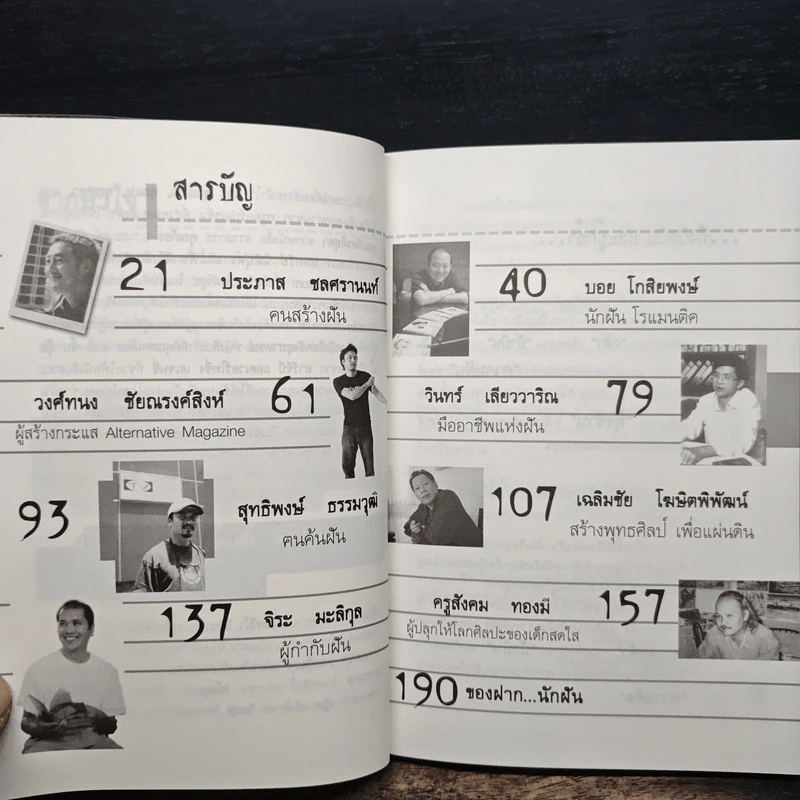 สารบัญ
21 ประภาส ชลศรานนท์
คนสร้างฝัน
วงศ์ทนง ชัยณรงค์สิงห์ 61
ผู้สร้างกระแส Alternative Magazine
93 สุทธิพงษ์ ธรรมวุฒิ
ฅนค้นฝัน
137 จิระ มะลิกุล
ผู้กำกับฝัน
40 บอย โกสิยพงษ์
นักฝัน โรแมนติค
วินทร์ เลียววาริณ 79
มืออาชีพแห่งฝัน
107 เฉลิมชัย โฆษิตพิพัฒน์
สร้างพุทธศิลป์ เพื่อแผ่นดิน
ครูสังคม ทองมี 157
ผู้ปลุกให้โลกศิลปะของเด็กสดใส
190 ของฝาก...นักฝัน